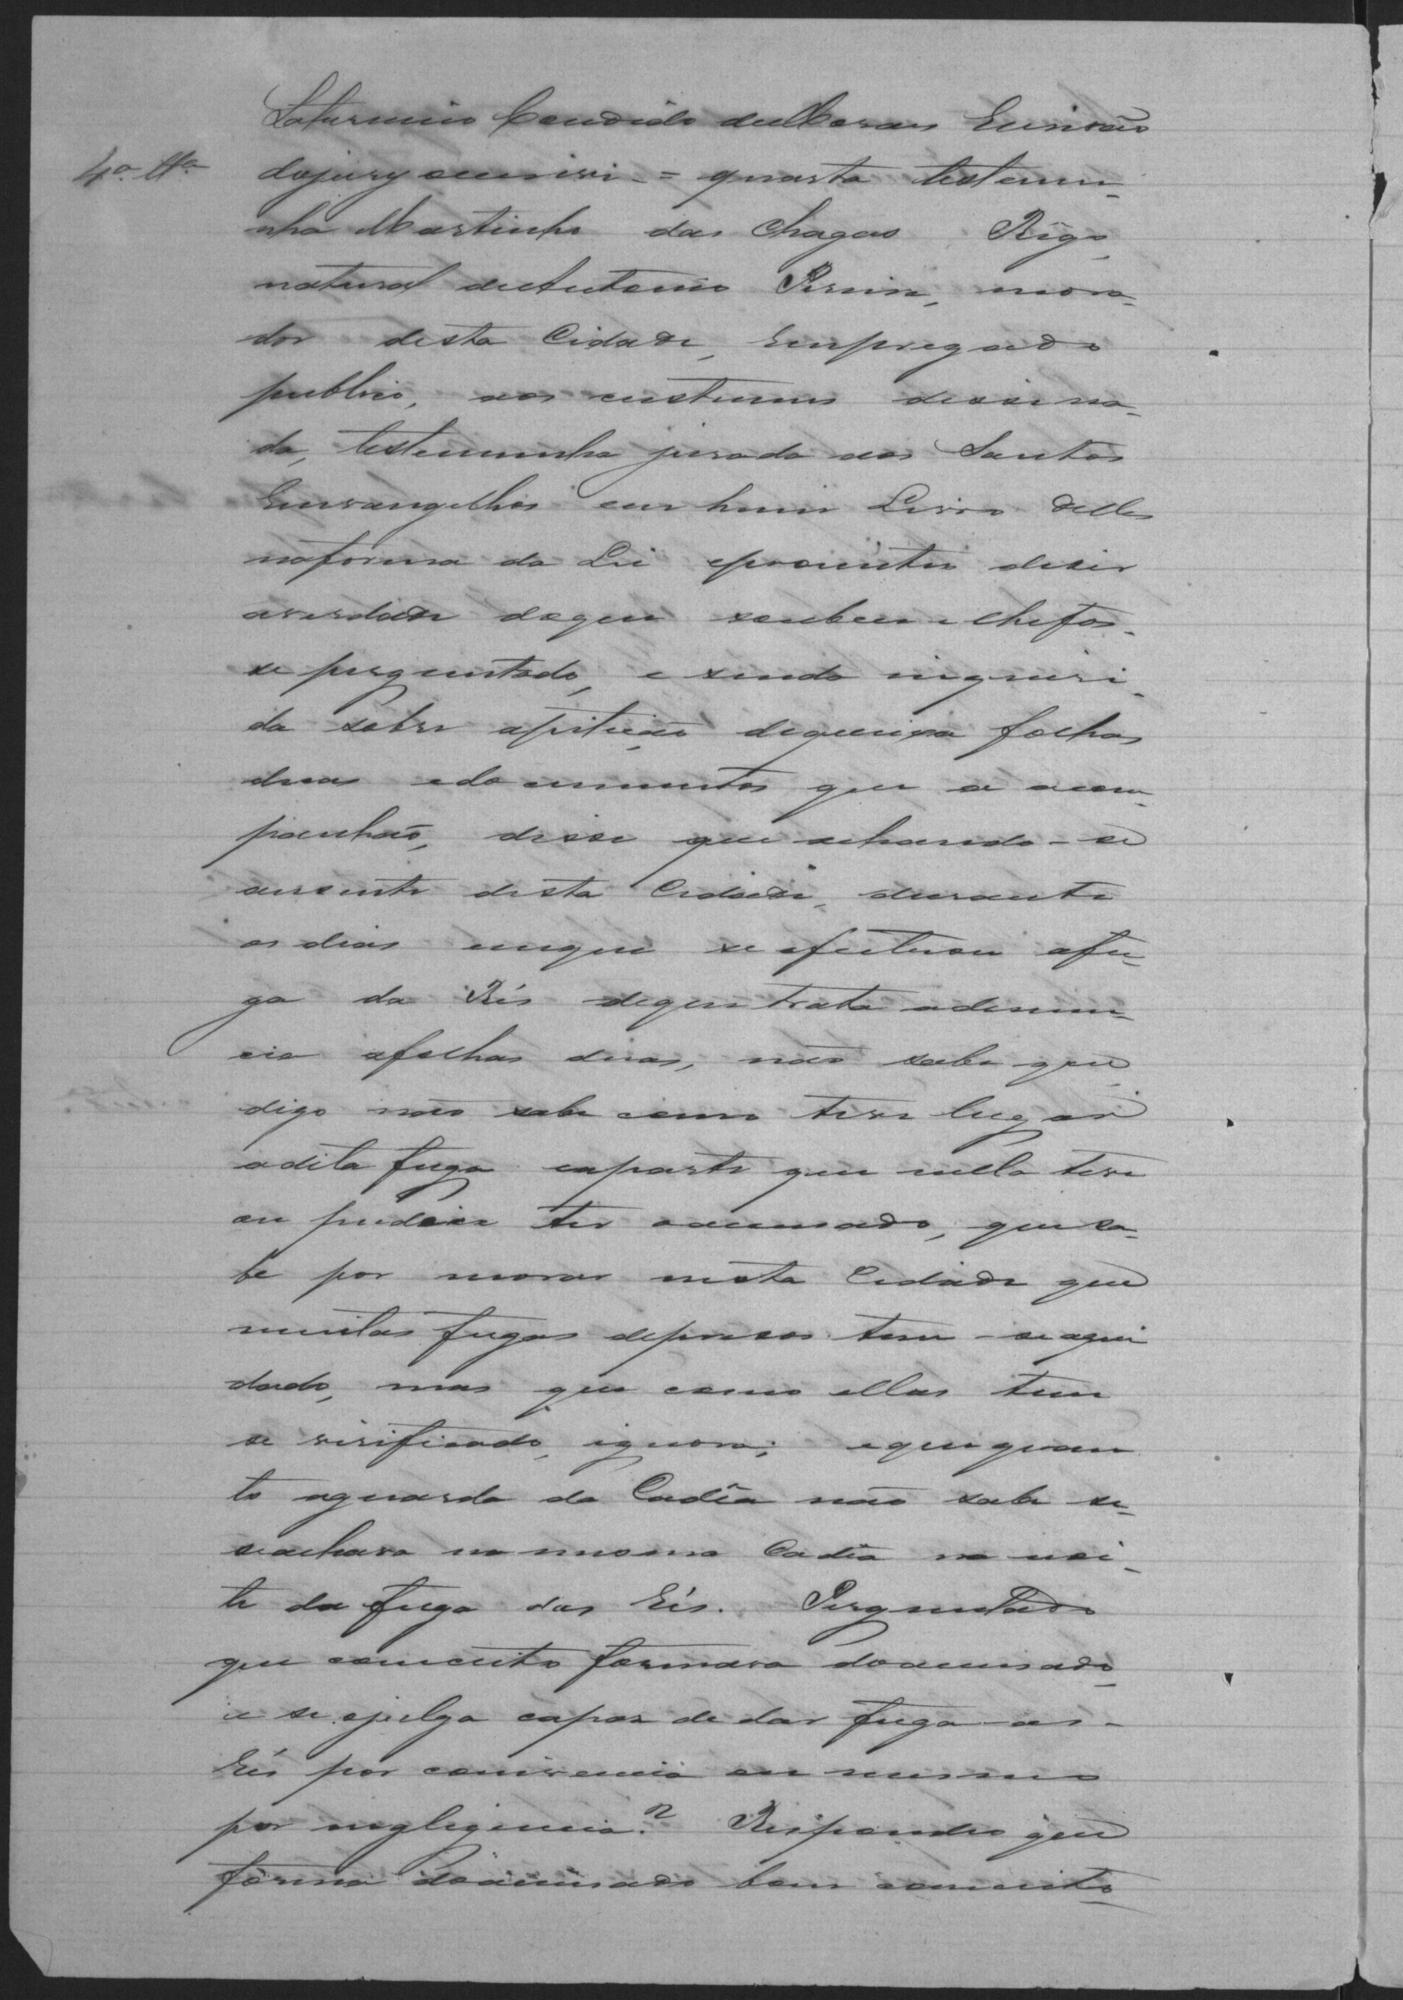 Saturnino Candido de Moraes Escrivão
4ª. ttª. dojury escrivi = quarta testemu-
nha Martinho das Chagas Rêgo,
natural de Antonio Pereira, mora-
dor desta Cidade, Empregado
publico, aos custumes disse na-
da, testemunha jurada aos Santos
Envangelhos em hum Livro delles
naforma da Lei eprometteo diser
averdade doque soubesse e lhefos-
se perguntado, e sendo inqueri-
da sobre apetição dequeixa folhas
duas edocumentos que a acom-
panhão, disse que achando-se
ausente desta Cidade, durante
os dias emque se efectuou afu-
ga da Rés dequetrata adenun-
cia afolhas duas, não sabe que
digo não sabe como teve lugar
adita fuga eaparte que nella teve
ou pudesse ter oacusado, que sa-
be por morar nesta Cidade que
muitas fugas depresos tem-se aqui
dado, mas que como ellas tem
se virificado, ignora; equequan
to aguarda da Cadêa não sabe se
seachava na mesma Cadêa na noi-
te da fuga das Rés. Perguntado
que conceito formava doacusado,
e se ojulga capas de dar fuga as-
Rés por conivencia ou mesmo
por negligencia? Respondeo que
forma doacusado bom conceito